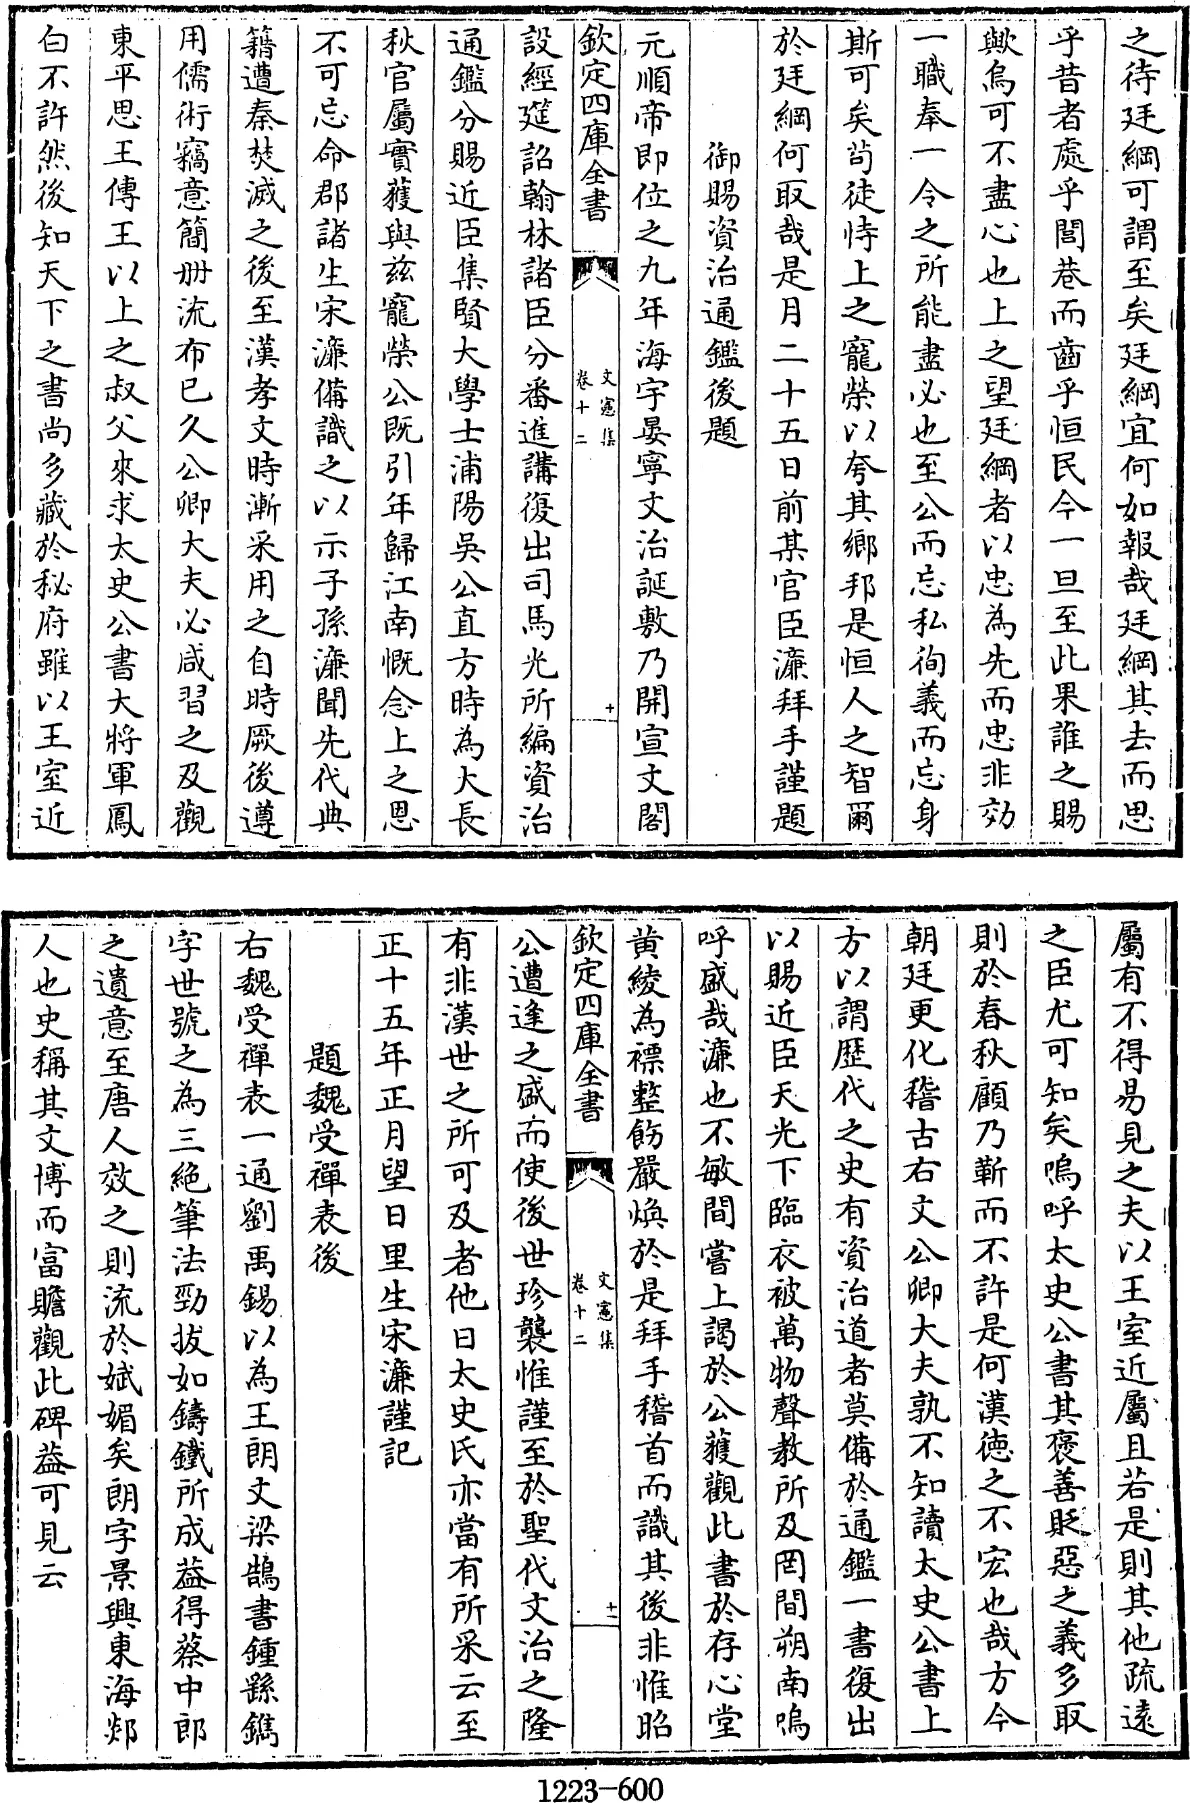 之待廷綱可謂至矣廷綱宜何如報哉廷綱其去而思
乎昔者處乎閭巷而齒乎恒民今一旦至此果誰之賜
歟烏可不盡心也上之望廷綱者以忠為先而忠非効
一職奉一令之所能盡必也至公而忘私徇義而忘身
斯可矣茍徒恃上之寵榮以夸其鄉邦是恒人之智爾
於廷綱何取哉是月二十五日前某官臣濂拜手謹題
御賜資治通鑑後題
元順帝即位之九年海宇晏寧文治誕敷乃開宣文閣
欽定四庫全書
文憲集
卷十二
十
設經筵詔翰林諸臣分番進講復出司馬光所編資治
通鑑分賜近臣集賢大學士浦陽吳公直方時為大長
秋官屬實獲與兹寵榮公既引年歸江南慨念上之恩
不可忘命郡諸生宋濂備識之以示子孫濂聞先代典
籍遭秦焚滅之後至漢孝文時漸采用之自時厥後遵
用儒術竊意簡册流布已久公卿大夫必咸習之及觀
東平思王傳王以上之叔父來求太史公書大將軍鳳
白不許然後知天下之書尚多藏於秘府雖以王室近
屬有不得易見之夫以王室近屬且若是則其他疏遠
之臣尤可知矣嗚呼太史公書其褒善貶惡之義多取
則於春秋顧乃靳而不許是何漢德之不宏也哉方今
朝廷更化稽古右文公卿大夫孰不知讀太史公書上
方以謂歴代之史有資治道者莫備於通鑑一書復出
以賜近臣天光下臨衣被萬物聲教所及罔間朔南嗚
呼盛哉濂也不敏間嘗上謁於公獲觀此書於存心堂
黄綾為褾整飭嚴焕於是拜手稽首而識其後非惟昭
欽定四庫全書
文憲集
卷十二
十一
公遭逢之盛而使後世珍襲惟謹至於聖代文治之隆
有非漢世之所可及者他日太史氏亦當有所采云至
正十五年正月望日里生宋濂謹記
題魏受禪表後
右魏受禪表一通劉禹錫以為王朗文梁鵠書鍾繇鐫
字世號之為三絶筆法勁拔如鑄鐵所成葢得蔡中郎
之遺意至唐人效之則流於娬媚矣朗字景興東海郯
人也史稱其文博而富贍觀此碑葢可見云
1223-600